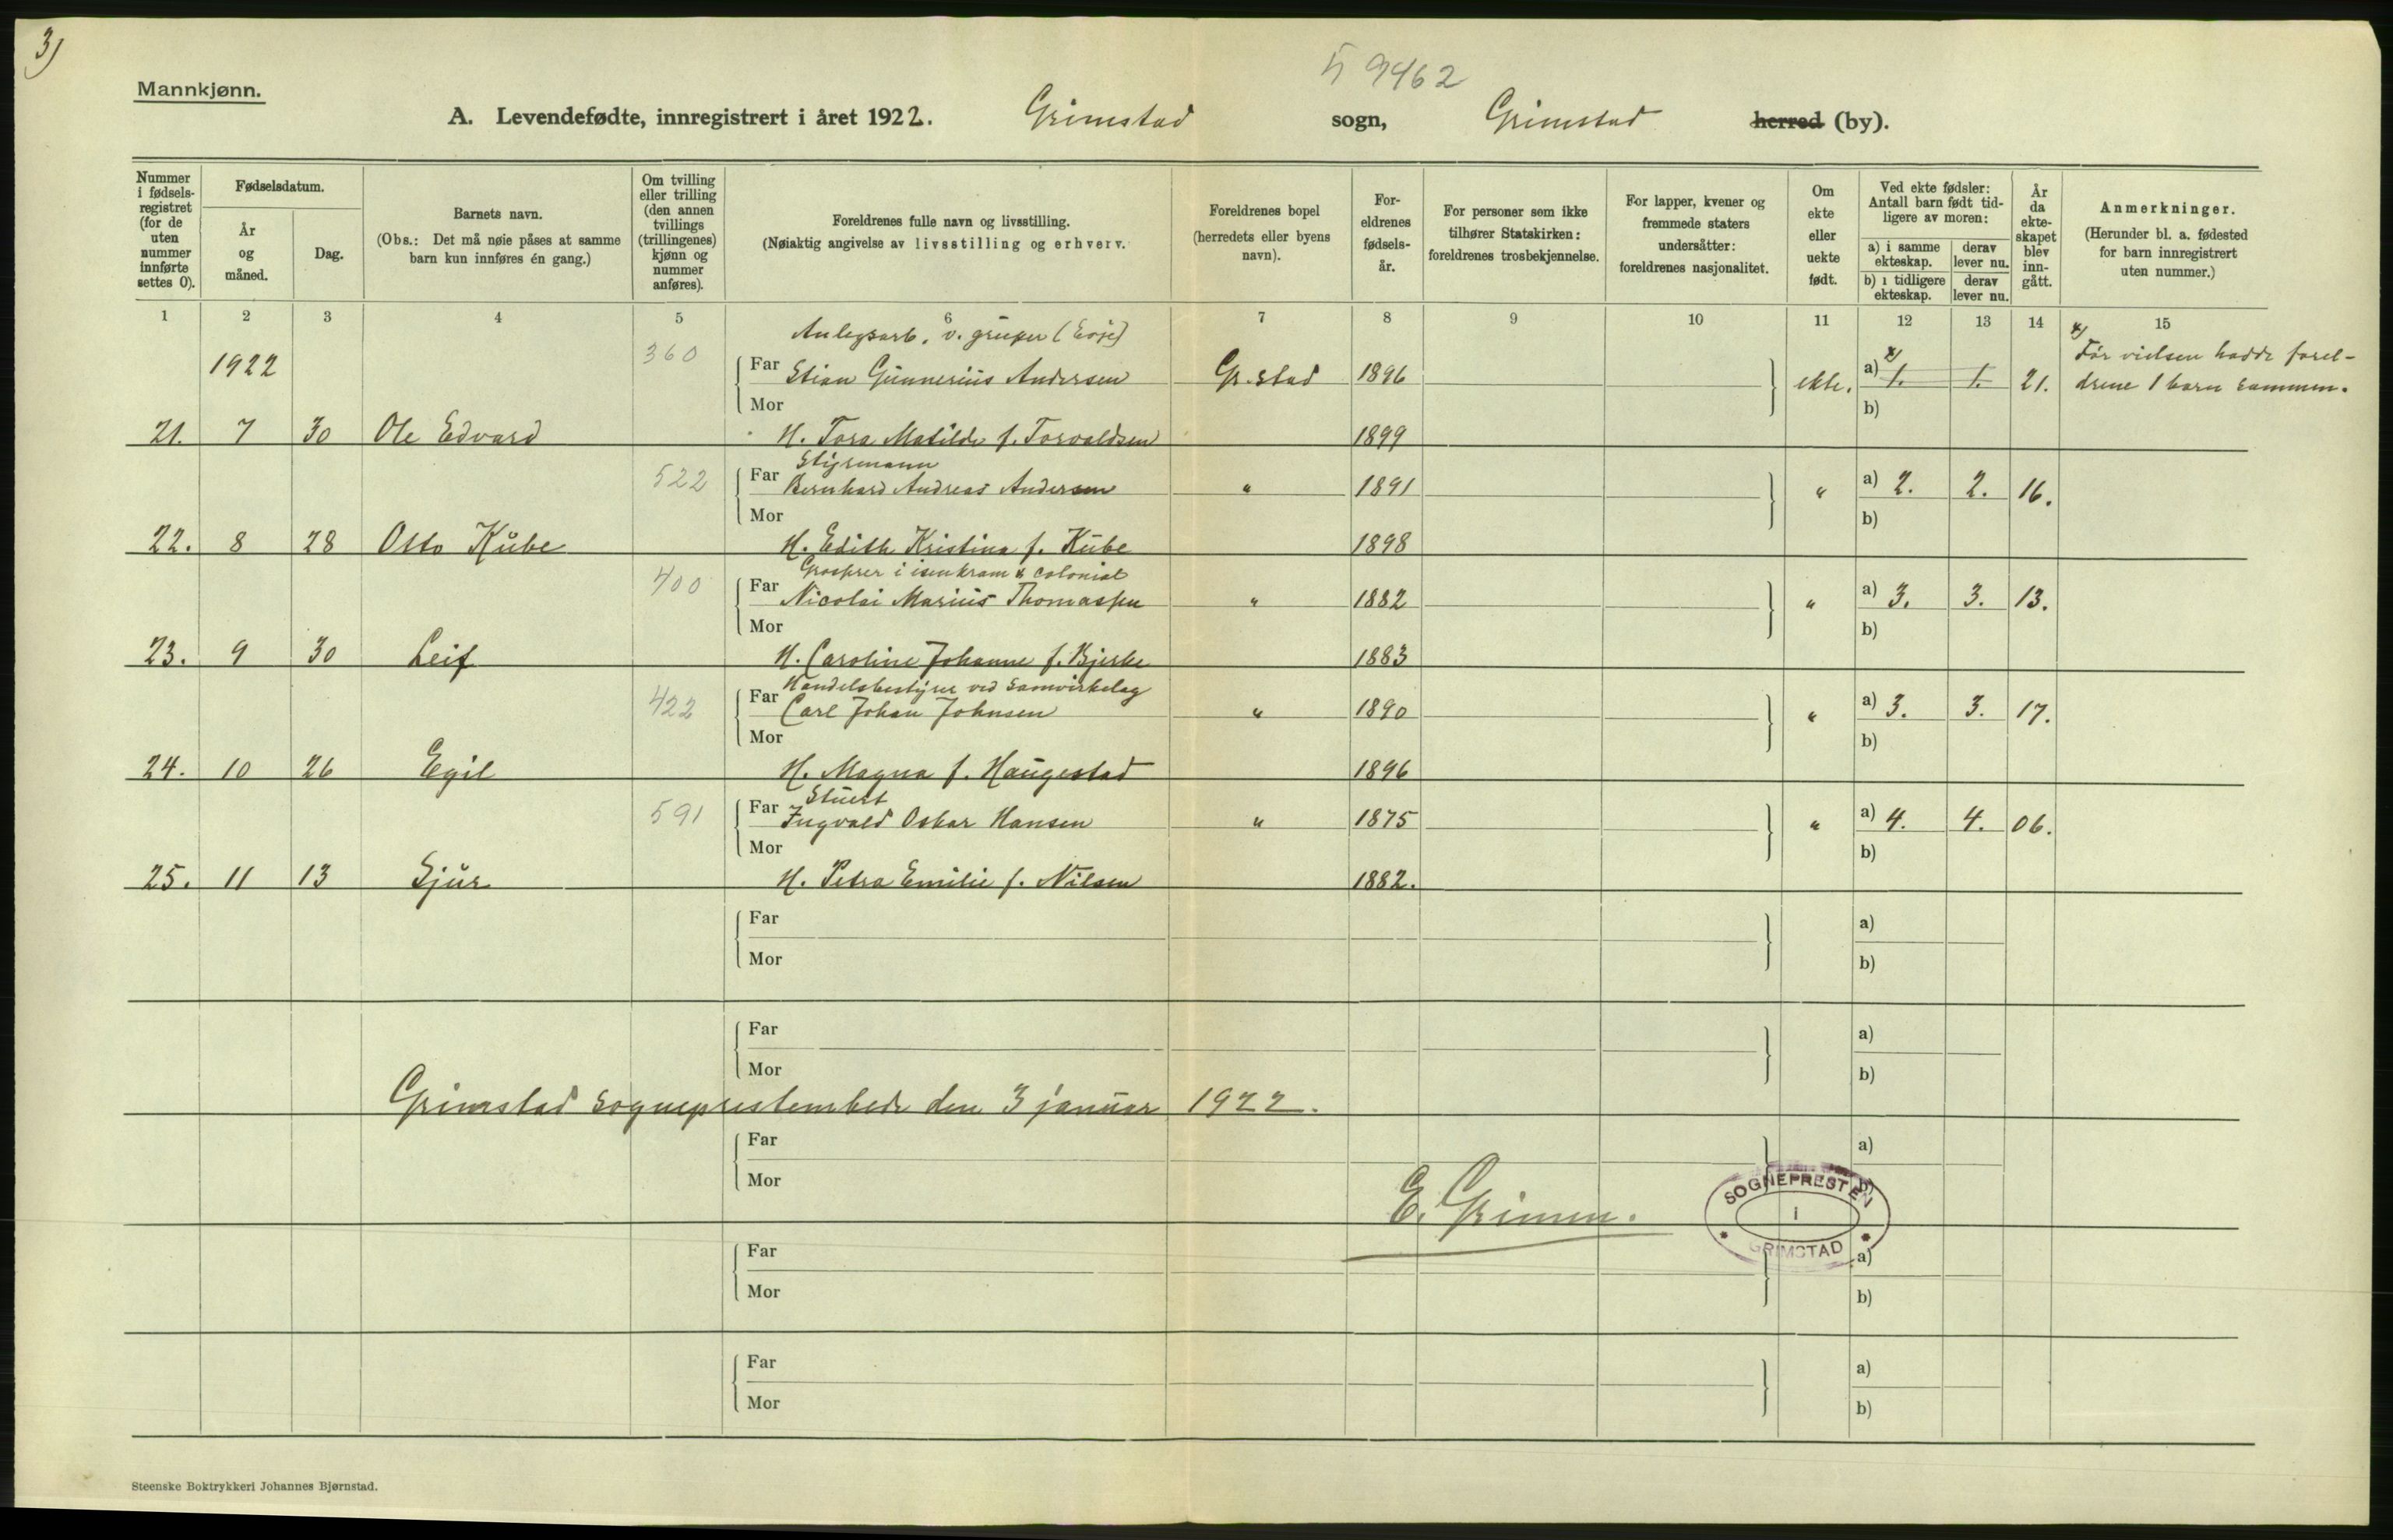 3)
Mannkjønn.
5 9462
A. Levendefødte, innregistrert i året 1922. Grimstad sogn, Grimstad herred (by).
Nummer i fødsels-registret (for de uten nummer innførte settes 0).
Fødselsdatum.
År og måned.
Dag.
Barnets navn.
(Obs.: Det må nøie påses at samme barn kun innføres én gang.)
Om tvilling eller trilling (den annen tvillings (trillingenes) kjønn og nummer anføres).
Foreldrenes fulle navn og livsstilling.
(Nøiaktig angivelse av livsstilling og erhverv.
Foreldrenes bopel (herredets eller byens navn).
For-eldrenes fødsels-år.
For personer som ikke tilhører Statskirken: foreldrenes trosbekjennelse.
For lapper, kvener og fremmede staters undersåtter: foreldrenes nasjonalitet.
Om ekte eller uekte født.
Ved ekte fødsler: Antall barn født tid-ligere av moren:
a) i samme ekteskap.
derav lever nu.
b) i tidligere ekteskap.
derav lever nu.
År da ekte-skapet blev inn-gått.
Anmerkninger.
(Herunder bl. a. fødested for barn innregistrert uten nummer.)
1 2 3 4 5 6 7 8 9 10 11 12 13 14 15
Anlegsarb. v. gruper (Evje)
1922 360 Far Stian Gunnerius Andersen Gr.stad 1896 ekte. a) x) 1. 1. 21. x) Før vielsen hadde forel-
drene 1 barn sammen.
Mor b)
21. 7 30 Ole Edvard H. Tora Matilde f. Torvaldsen 1899
Styrmann
522 Far Bernhard Andreas Andersen " 1891 " a) 2. 2. 16.
Mor b)
22. 8 28 Otto Kübe H. Edith Kristina f. Kübe 1898
Grosserer i isenkram & colonial
400 Far Nicolai Marius Thomassen " 1882 " a) 3. 3. 13.
Mor b)
23. 9 30 Leif H. Caroline Johanne f. Bjerke 1883
Handelsbestyrer ved Samvirkelag
422 Far Carl Johan Johnsen " 1890 " a) 3. 3. 17.
Mor b)
24. 10 26 Egil H. Magna f. Haugestad 1896
Stuert
591 Far Ingvald Oskar Hansen " 1875 " a) 4. 4. 06.
Mor b)
25. 11 13 Sjur H. Petra Emilie f. Nilsen 1882.
Far a)
Mor b)
Far a)
Mor b)
Grimstad sogneprestembede den 3 januar 1922.
Far a)
Mor b)
E. Grimen.
SOGNEPRESTEN
I
* GRIMSTAD *
Far a)
Mor b)
Far a)
Mor b)
Steenske Boktrykkeri Johannes Bjørnstad.